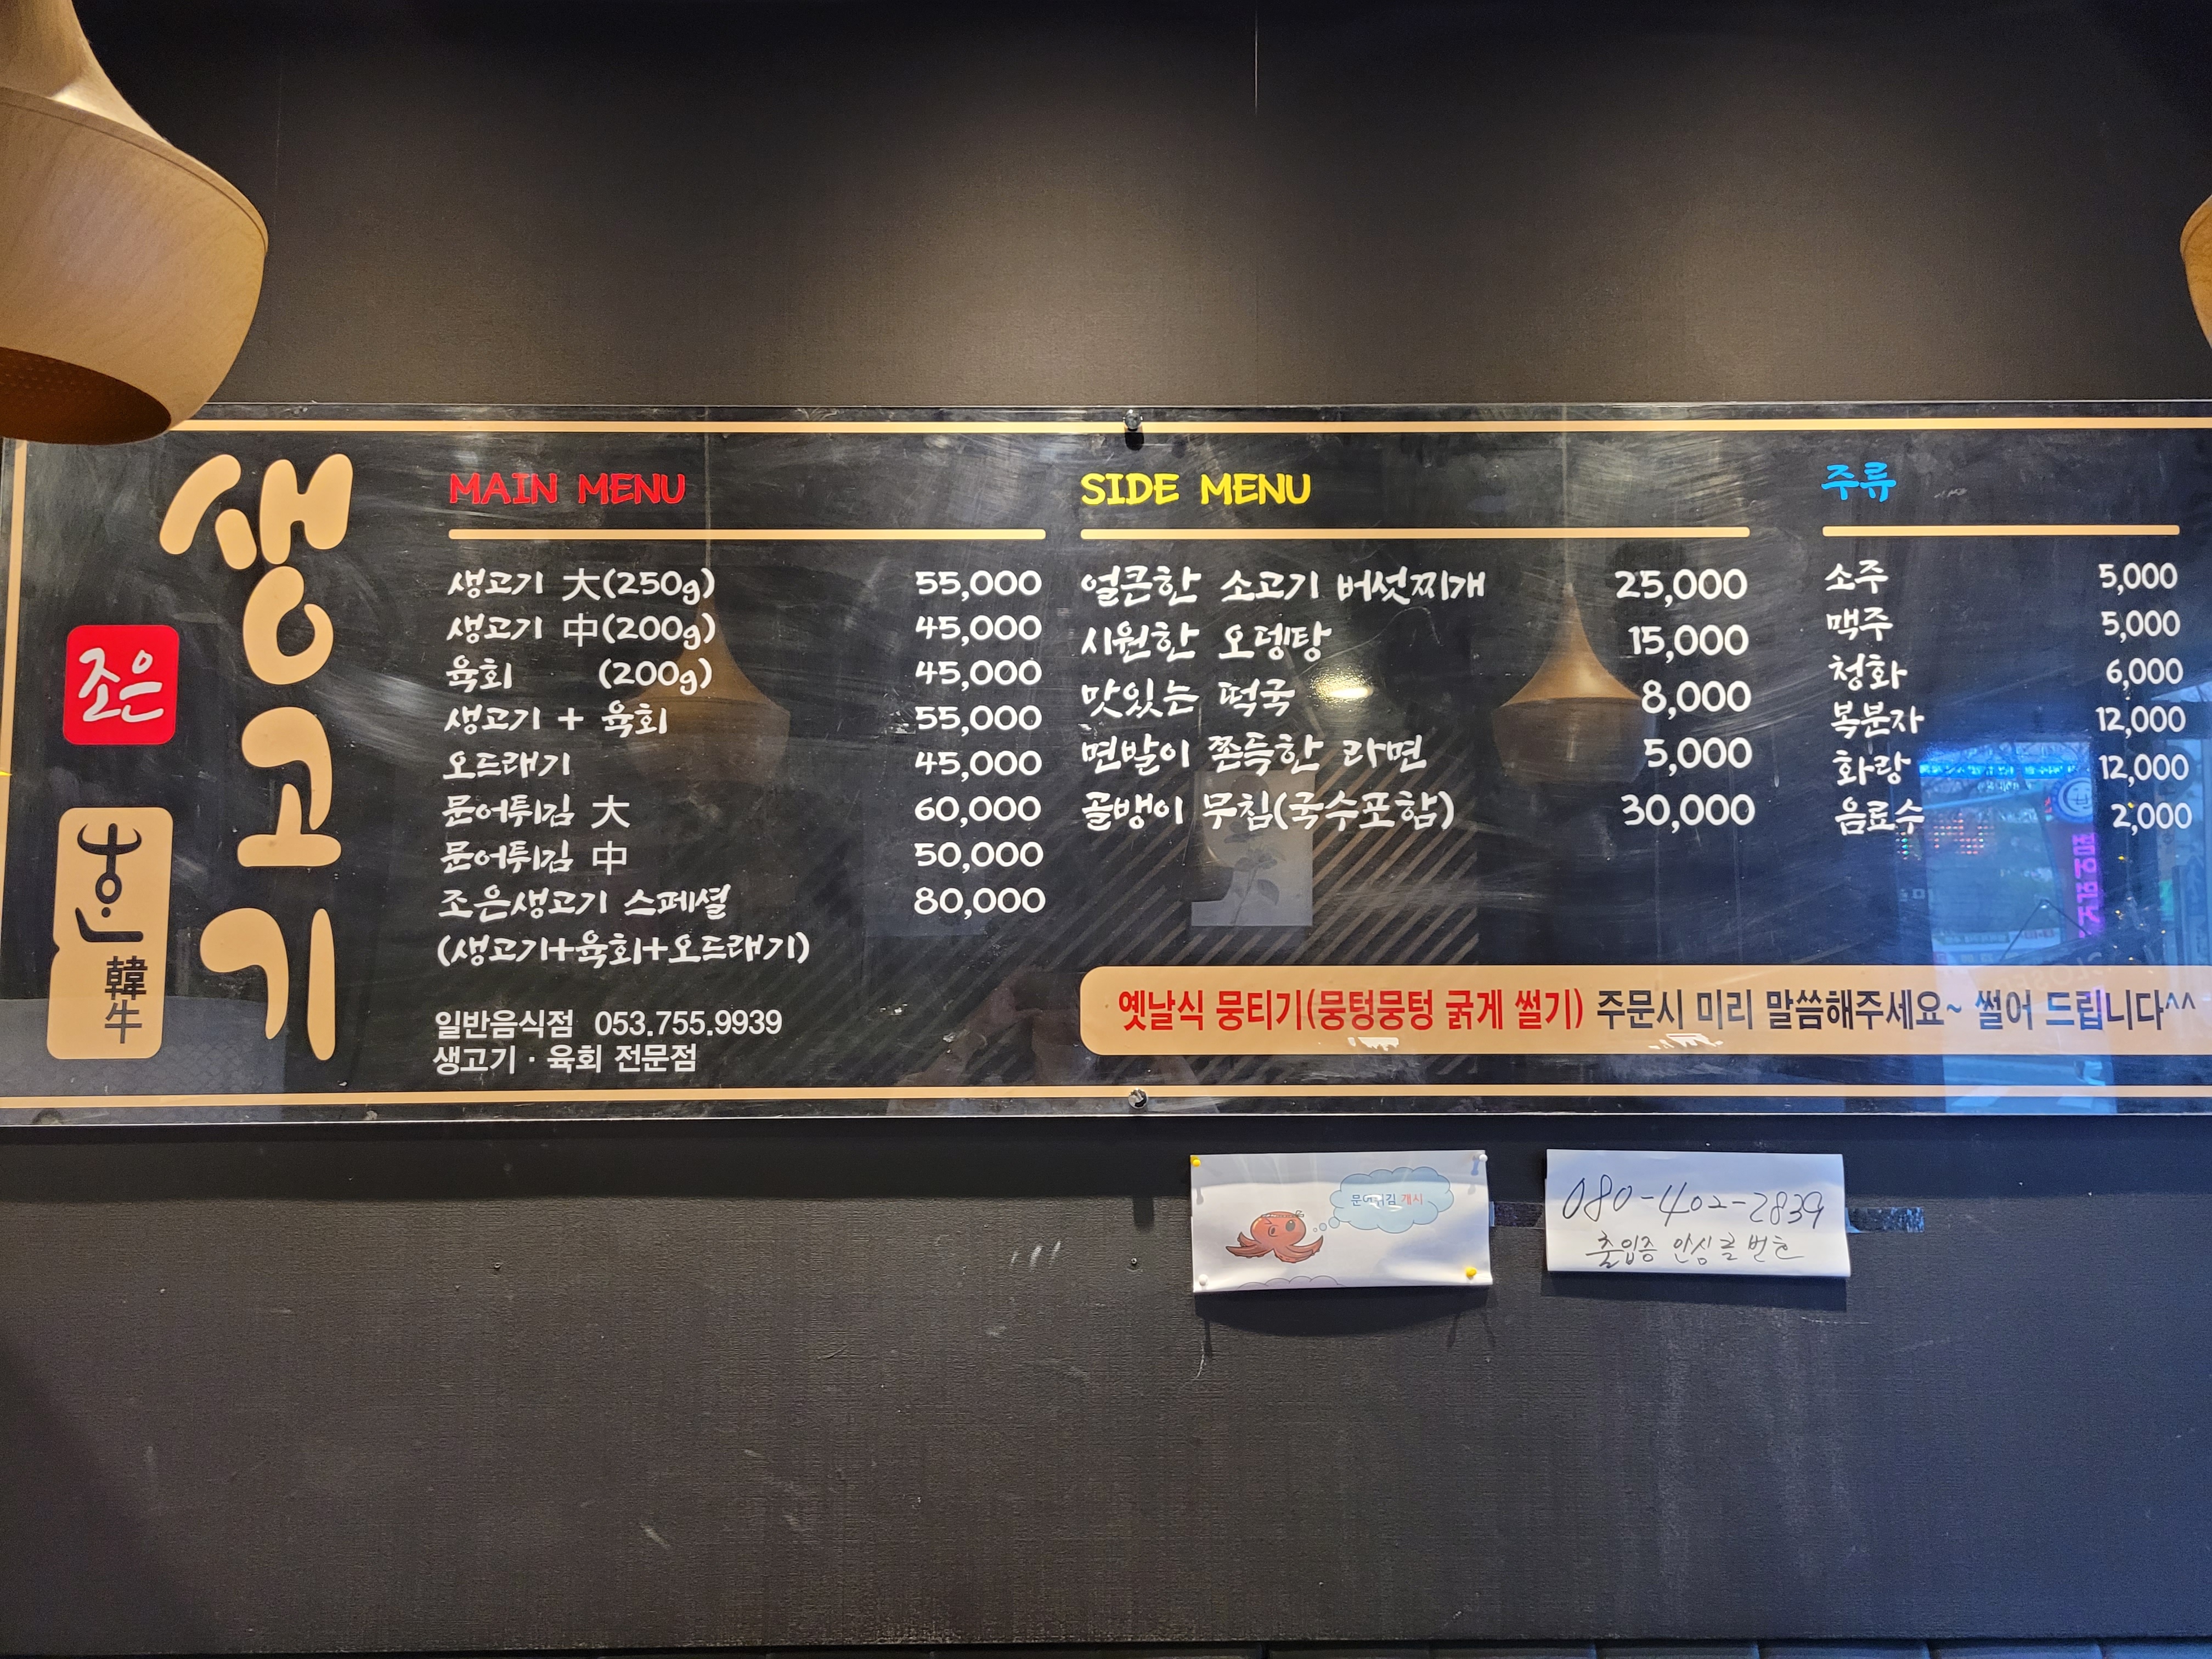 생고기
조은
한
韓牛
MAIN MENU
생고기 大(250g) 55,000
생고기 中(200g) 45,000
육회 (200g) 45,000
생고기 + 육회 55,000
오드래기 45,000
문어튀김 大 60,000
문어튀김 中 50,000
조은생고기 스페셜 80,000
(생고기+육회+오드래기)
일반음식점 053.755.9939
생고기 · 육회 전문점
SIDE MENU
얼큰한 소고기 버섯찌개 25,000
시원한 오뎅탕 15,000
맛있는 떡국 8,000
면발이 쫀득한 라면 5,000
골뱅이 무침(국수포함) 30,000
주류
소주 5,000
맥주 5,000
청화 6,000
복분자 12,000
화랑 12,000
음료수 2,000
옛날식 뭉티기(뭉텅뭉텅 굵게 썰기) 주문시 미리 말씀해주세요~ 썰어 드립니다^^
문어튀김 개시
080-402-2839
출입증 안심콜 번호